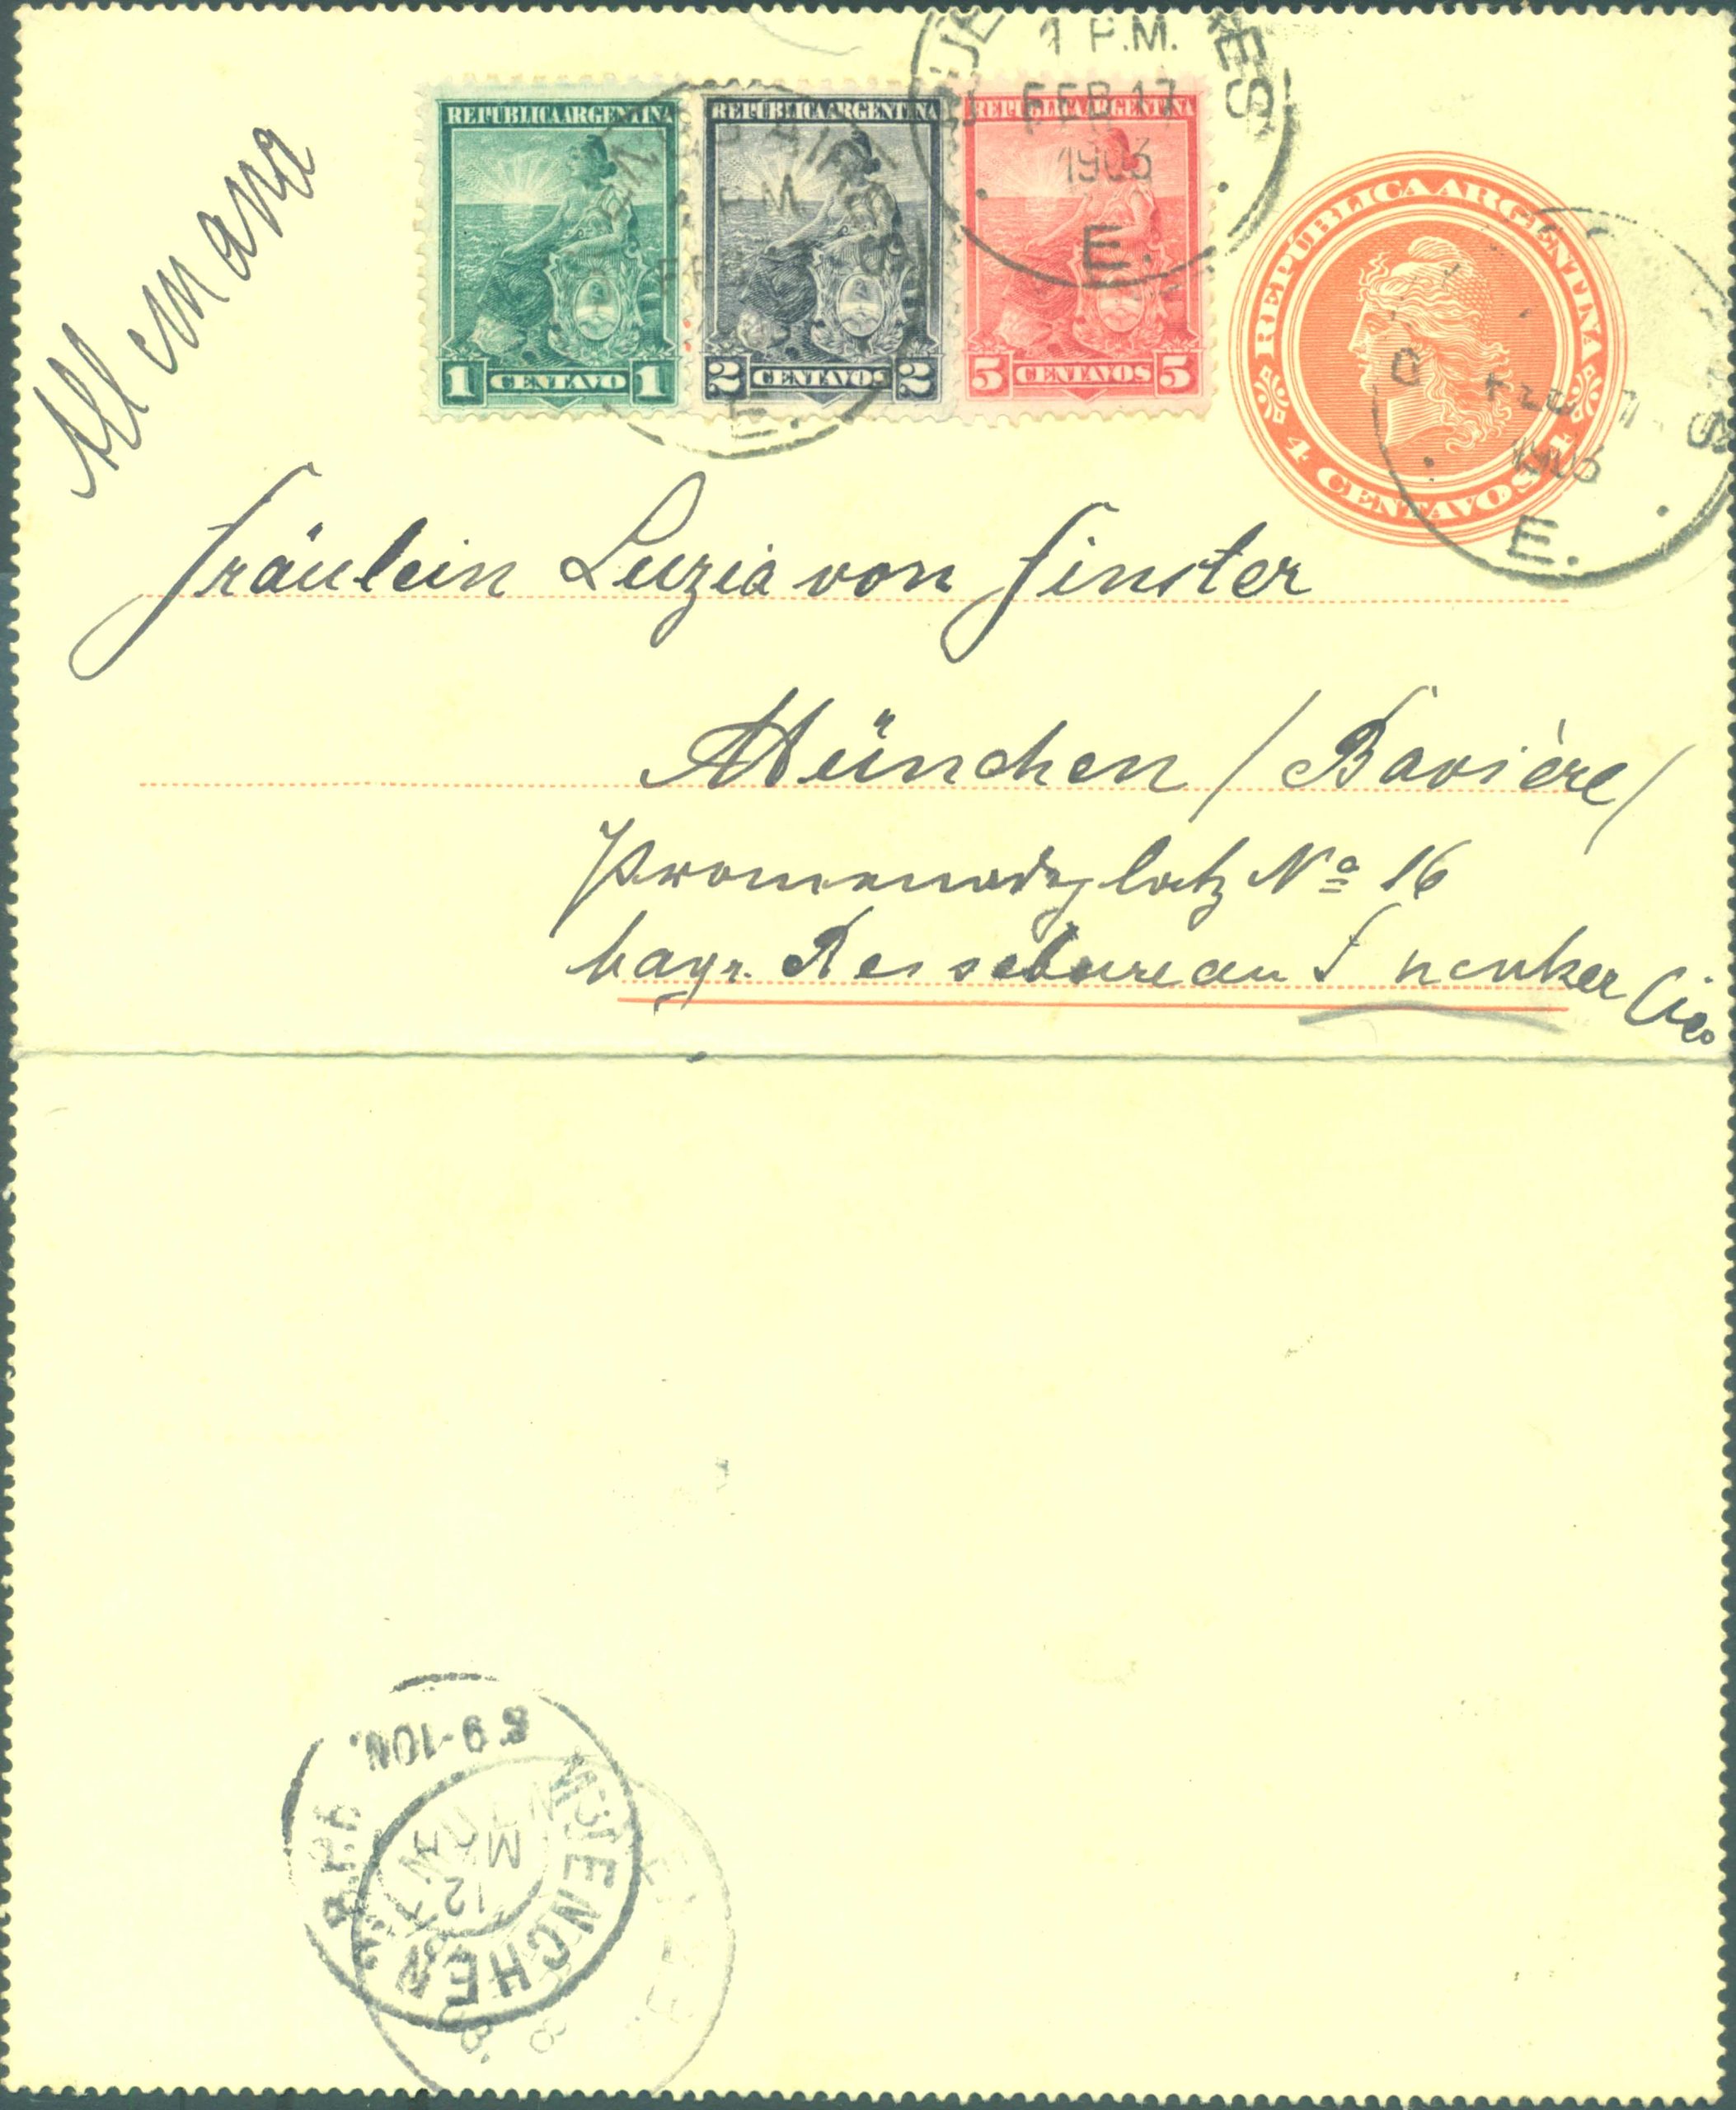 1 P.M.
FEB 17
1903
E.
REPÚBLICA ARGENTINA
1 CENTAVO 1
REPÚBLICA ARGENTINA
2 CENTAVOS 2
REPÚBLICA ARGENTINA
5 CENTAVOS 5
REPUBLICA ARGENTINA
4 CENTAVOS 4
1903
E.
E.
Allemana
Fräulein Luzia von Finster
München / Bavière /
Promenadeplatz Nº 16
bayr. Reisebureau Schenker Cie
8 9-10 N.
MUENCHEN
12